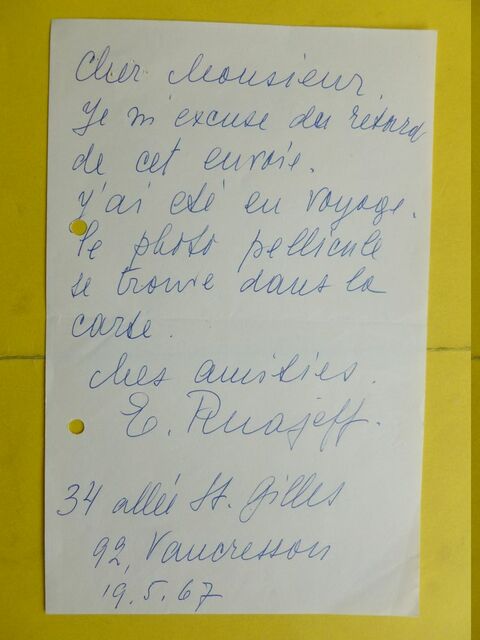 Cher Monsieur.
Je m'excuse du retard
de cet envoie.
J'ai été en voyage.
le photo pellicule
se trouve dans la
carte.
Mes amitiés.
E.
34 allée St. Gilles
92, Vaucresson
19.5.67